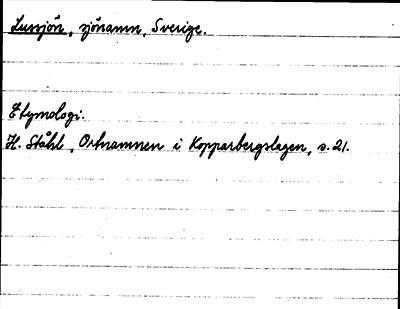 Lussjön, sjönamn, Sverige.
Etymologi:
H. Ståhl, Ortnamnen i Kopparbergslagen, s. 21.